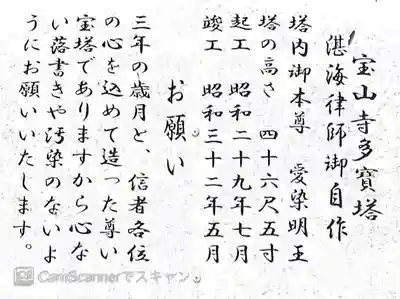 宝山寺多寳塔
湛海律師御自作
塔内御本尊 愛染明王
塔の高さ 四十六尺五寸
起工 昭和二十九年七月
竣工 昭和三十二年五月
お願い
三年の歳月と、信者各位
の心を込めて造った尊い
宝塔でありますから心な
い落書きや汚染のないよ
うにお願いいたします。
CamScannerでスキャン